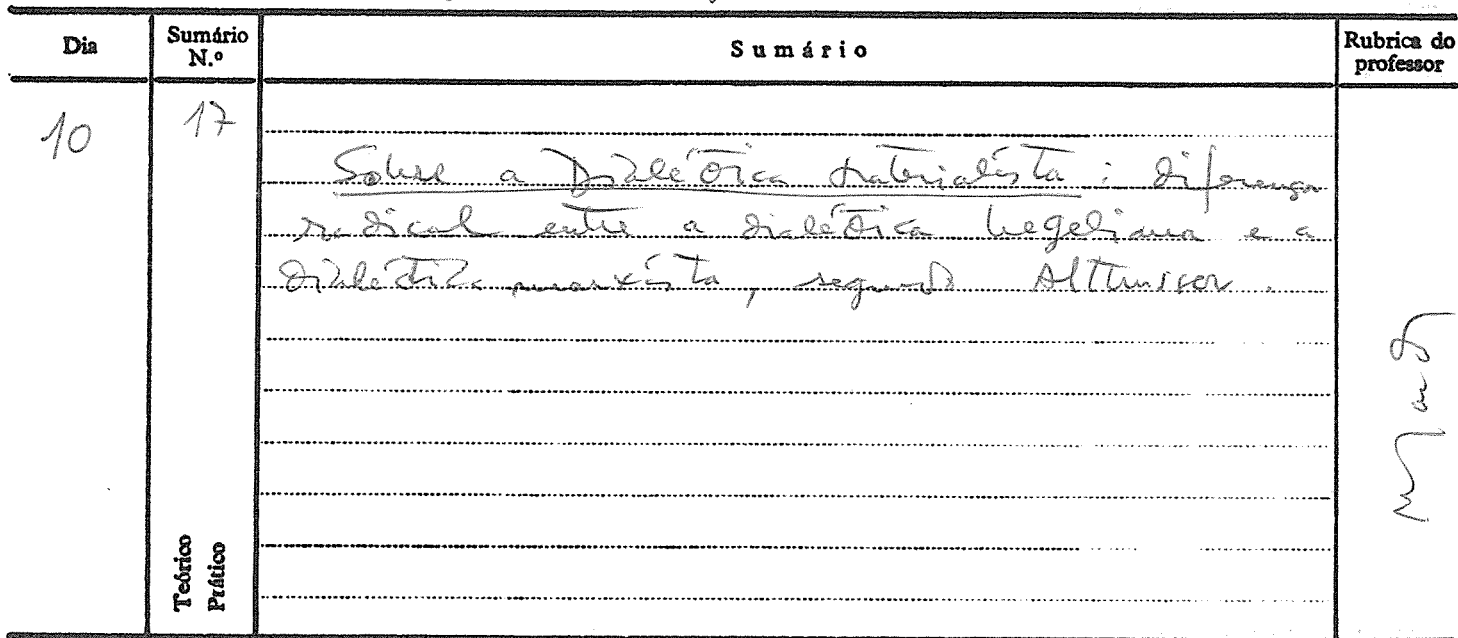 Dia
Sumário N.º
Sumário
Rubrica do professor
10
17
Sobre a Dialéctica Materialista: diferença
radical entre a dialéctica hegeliana e a
dialéctica marxista, segundo Althusser.
Teórico
Prático